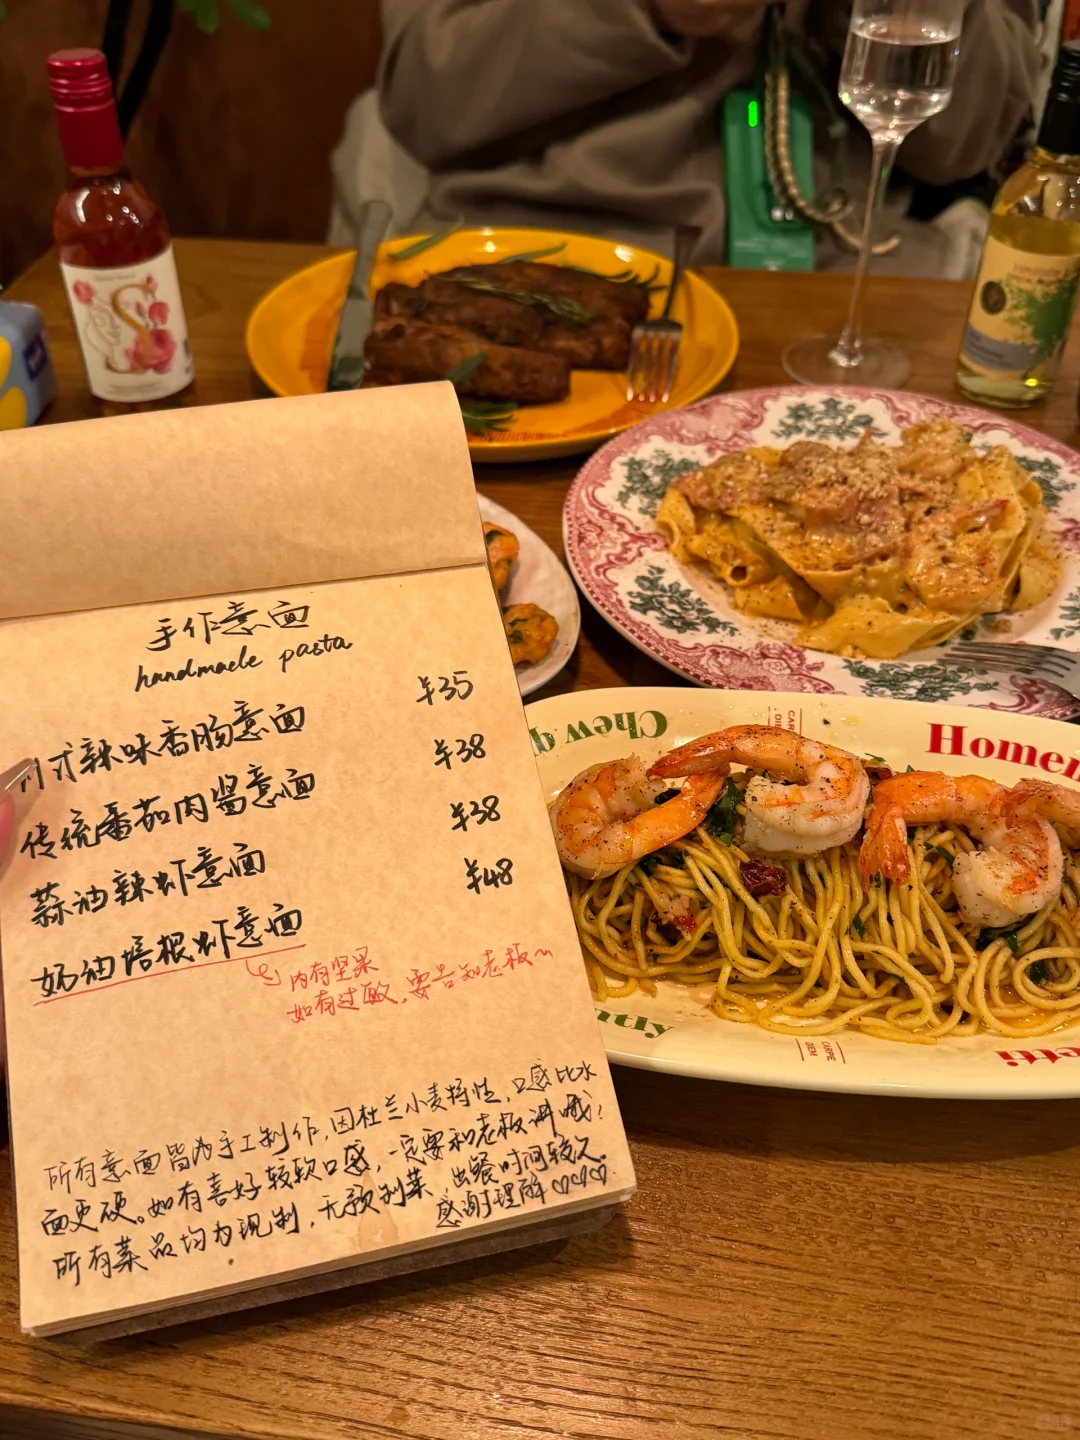 手作意面
handmade pasta
川式辣味香肠意面 ¥35
传统番茄肉酱意面 ¥38
蒜油辣虾意面 ¥38
奶油培根虾意面 ¥48
内有坚果
如有过敏，要告知老板~
所有意面皆为手工制作，因杜兰小麦特性，口感比水
面更硬。如有喜好较软口感，一定要和老板讲哦！
所有菜品均为现制，无预制菜，出餐时间较久。
感谢理解♡♡♡
Chew
Homem
etti
CARPE
DIEM
S